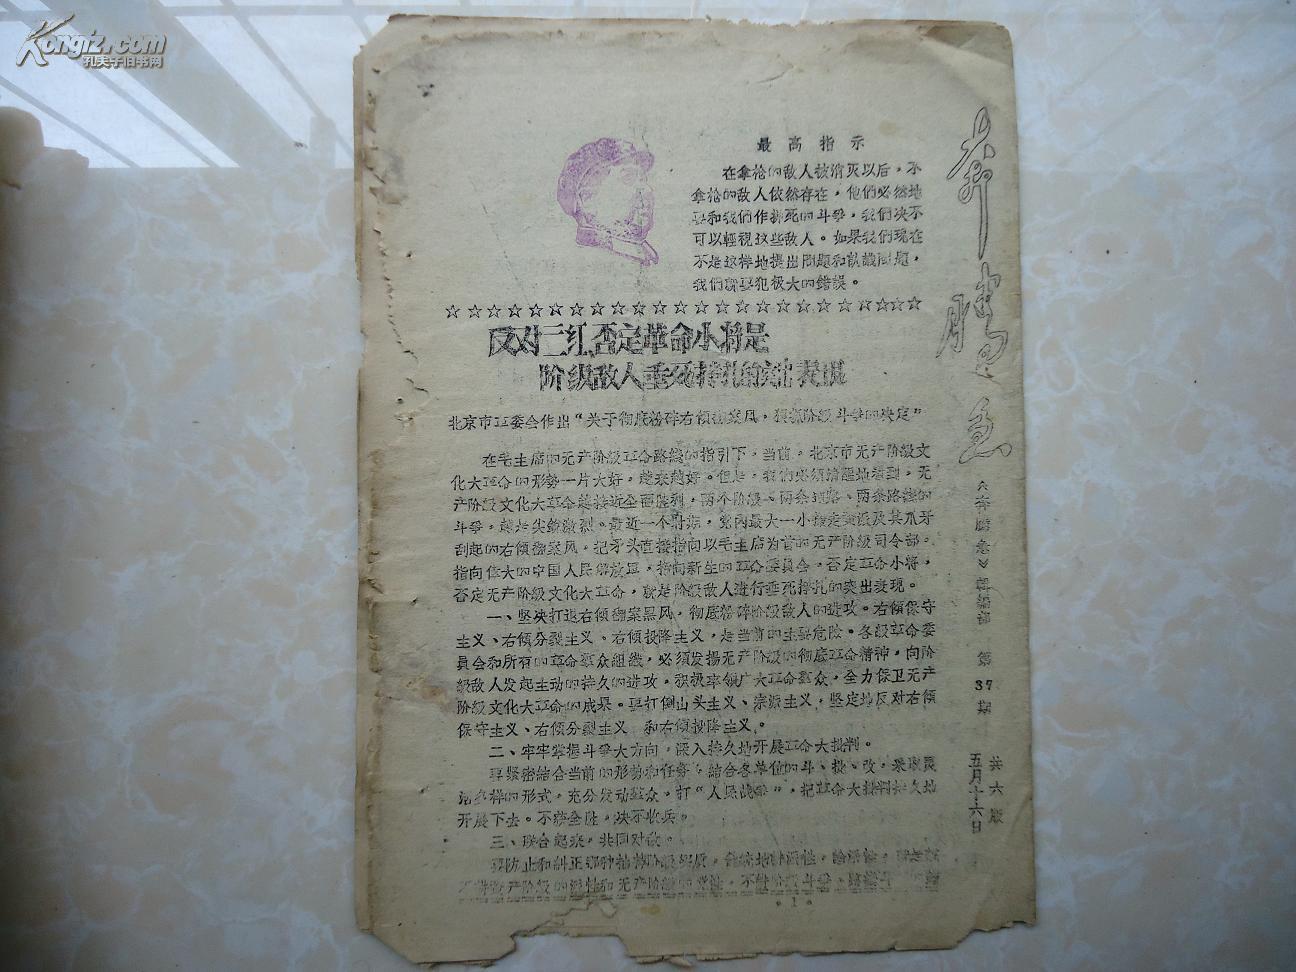 Kongfz.com
孔夫子旧书网
最高指示
在拿枪的敌人被消灭以后，不
拿枪的敌人依然存在，他們必然地
要和我們作拚死的斗爭，我們决不
可以輕視这些敌人。如果我們現在
不是这样地提出問題和認識問題，
我們就要犯极大的錯誤。
☆☆☆☆☆☆☆☆☆☆☆☆☆☆☆☆☆☆☆☆☆☆☆
反对三红否定革命小将是
阶级敌人垂死挣扎的突出表现
北京市革委会作出“关于彻底粉碎右傾翻案风，狠抓阶级斗争的决定”
在毛主席的无产阶级革命路綫的指引下，当前，北京市无产阶级文
化大革命的形勢一片大好，越来越好。但是，我們必须清醒地看到，无
产阶级文化大革命越接近全面胜利，两个阶级、两条道路、两条路綫的
斗爭，越是尖銳激烈。最近一个时期，党內最大一小撮走資派及其爪牙
刮起的右傾翻案风，把矛头直接指向以毛主席为首的无产阶级司令部。
指向偉大的中国人民解放軍，指向新生的革命委員会，否定革命小将，
否定无产阶级文化大革命，就是阶级敌人进行垂死挣扎的突出表現。
一、坚决打退右傾翻案黑风，彻底粉碎阶级敌人的进攻。右傾保守
主义、右傾分裂主义、右傾投降主义，是当前的主要危险。各級革命委
員会和所有的革命羣众組織，必須发揚无产阶级的彻底革命精神，向阶
級敌人发起主动的持久的进攻，积极率領广大革命羣众，全力保卫无产
阶級文化大革命的成果。要打倒山头主义、宗派主义，坚定地反对右傾
保守主义、右傾分裂主义 和右傾投降主义。
二、牢牢掌握斗爭大方向，深入持久地开展革命大批判。
要紧密結合当前的形勢和任务，結合各单位的斗、批、改，采取灵
活多样的形式，充分发动羣众，打“人民战爭”，把革命大批判持久地
开展下去。不获全胜，决不收兵。
三、联合起来，共同对敌。
要防止和糾正那种抽掉阶級
产阶级的 和无产阶级的
·1·
奔腾急
《奔腾急》編輯部 第37期
共六版
五月十六日